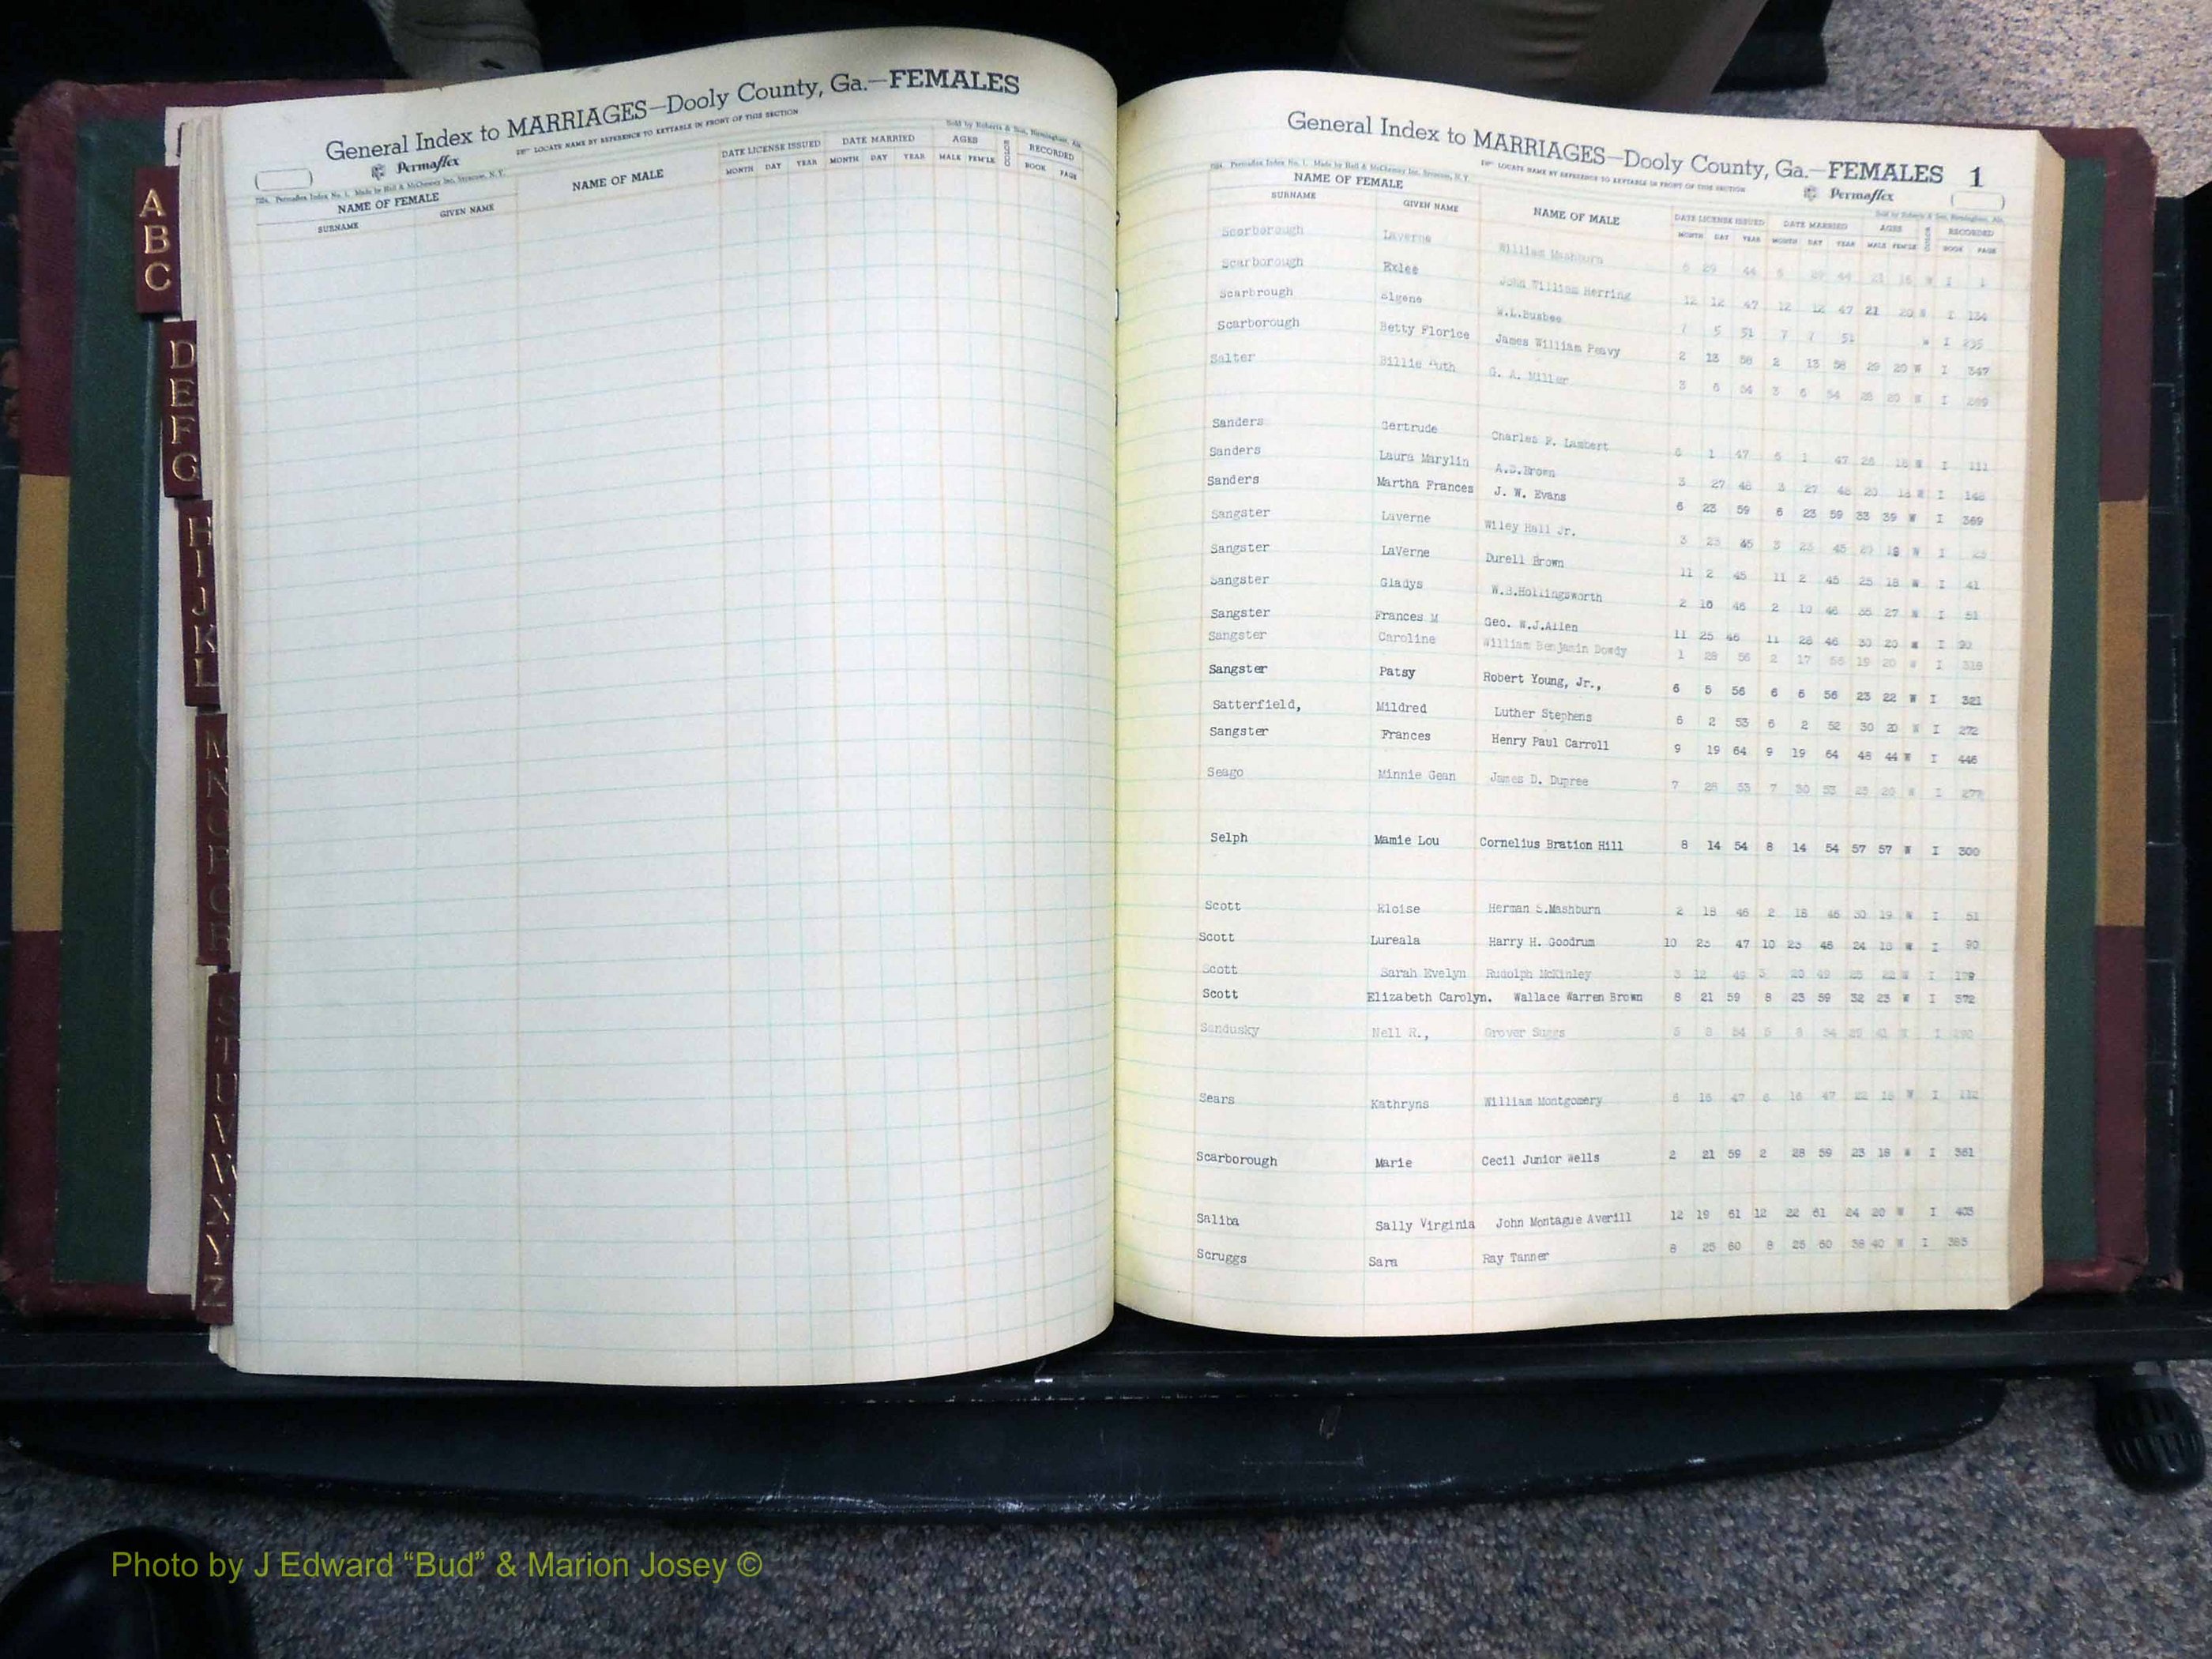 General Index to MARRIAGES—Dooly County, Ga.—FEMALES
Permaflex
LOCATE NAME BY REFERENCE TO KEYTABLE IN FRONT OF THIS SECTION
Sold by Roberts & Son, Birmingham, Ala.
NAME OF FEMALE
SURNAME GIVEN NAME
NAME OF MALE
DATE LICENSE ISSUED DATE MARRIED AGES COLOR RECORDED
MONTH DAY YEAR MONTH DAY YEAR MALE FEM'LE BOOK PAGE
A
B
C
D
E
F
G
H
I
J
K
L
M
N
O
P
Q
R
S
T
U
V
W
X
Y
Z
General Index to MARRIAGES—Dooly County, Ga.—FEMALES 1
LOCATE NAME BY REFERENCE TO KEYTABLE IN FRONT OF THIS SECTION
Permaflex
Sold by Roberts & Son, Birmingham, Ala.
NAME OF FEMALE
SURNAME GIVEN NAME
NAME OF MALE
DATE LICENSE ISSUED DATE MARRIED AGES COLOR RECORDED
MONTH DAY YEAR MONTH DAY YEAR MALE FEM'LE BOOK PAGE
Scorborough Laverne William Mashburn 6 29 44 6 29 44 21 16 W I 1
Scarborough Exlee John William Herring 12 12 47 12 12 47 21 20 W I 134
Scarbrough Elgene W.L.Busbee 7 5 51 7 7 51 W I 235
Scarborough Betty Florice James William Peavy 2 13 58 2 13 58 29 20 W I 347
Salter Billie Ruth G. A. Miller 3 6 54 3 6 54 28 20 W I 289
Sanders Gertrude Charles P. Lambert 6 1 47 6 1 47 26 18 W I 111
Sanders Laura Marylin A.S.Brown 3 27 48 3 27 48 20 18 W I 148
Sanders Martha Frances J. W. Evans 6 23 59 6 23 59 33 39 W I 369
Sangster Laverne Wiley Hall Jr. 3 23 45 3 23 45 18 W I
Sangster LaVerne Durell Brown 11 2 45 11 2 45 25 18 W I 41
Sangster Gladys W.B.Hollingsworth 2 10 46 2 10 46 35 27 W I 51
Sangster Frances M Geo. W.J.Allen 11 25 46 11 28 46 30 20 W I 90
Sangster Caroline William Benjamin Dowdy 1 28 56 2 17 56 19 20 W I
Sangster Patsy Robert Young, Jr., 6 5 56 6 6 56 23 22 W I 321
Satterfield, Mildred Luther Stephens 6 2 53 6 2 52 30 20 W I 272
Sangster Frances Henry Paul Carroll 9 19 64 9 19 64 48 44 W I 446
Seago Minnie Gean James D. Dupree 7 28 53 7 30 53 25 20 W I 277
Selph Mamie Lou Cornelius Bration Hill 8 14 54 8 14 54 57 57 W I 300
Scott Eloise Herman S.Mashburn 2 18 46 2 18 46 30 19 W I 51
Scott Lureala Harry H. Goodrum 10 23 47 10 23 46 24 18 W I 90
Scott Sarah Evelyn Rudolph McKinley 3 12 49 3 20 49 25 22 W I 179
Scott Elizabeth Carolyn. Wallace Warren Brown 8 21 59 8 23 59 32 23 W I 372
Sandusky Nell R., Grover Suggs 5 8 54 5 8 54 41 W I
Sears Kathryns William Montgomery 6 16 47 6 16 47 22 18 W I 112
Scarborough Marie Cecil Junior Wells 2 21 59 2 28 59 23 18 W I 361
Saliba Sally Virginia John Montague Averill 12 19 61 12 22 61 24 20 W I 403
Scruggs Sara Ray Tanner 8 25 60 8 25 60 38 40 W I 385
Photo by J Edward “Bud” & Marion Josey ©